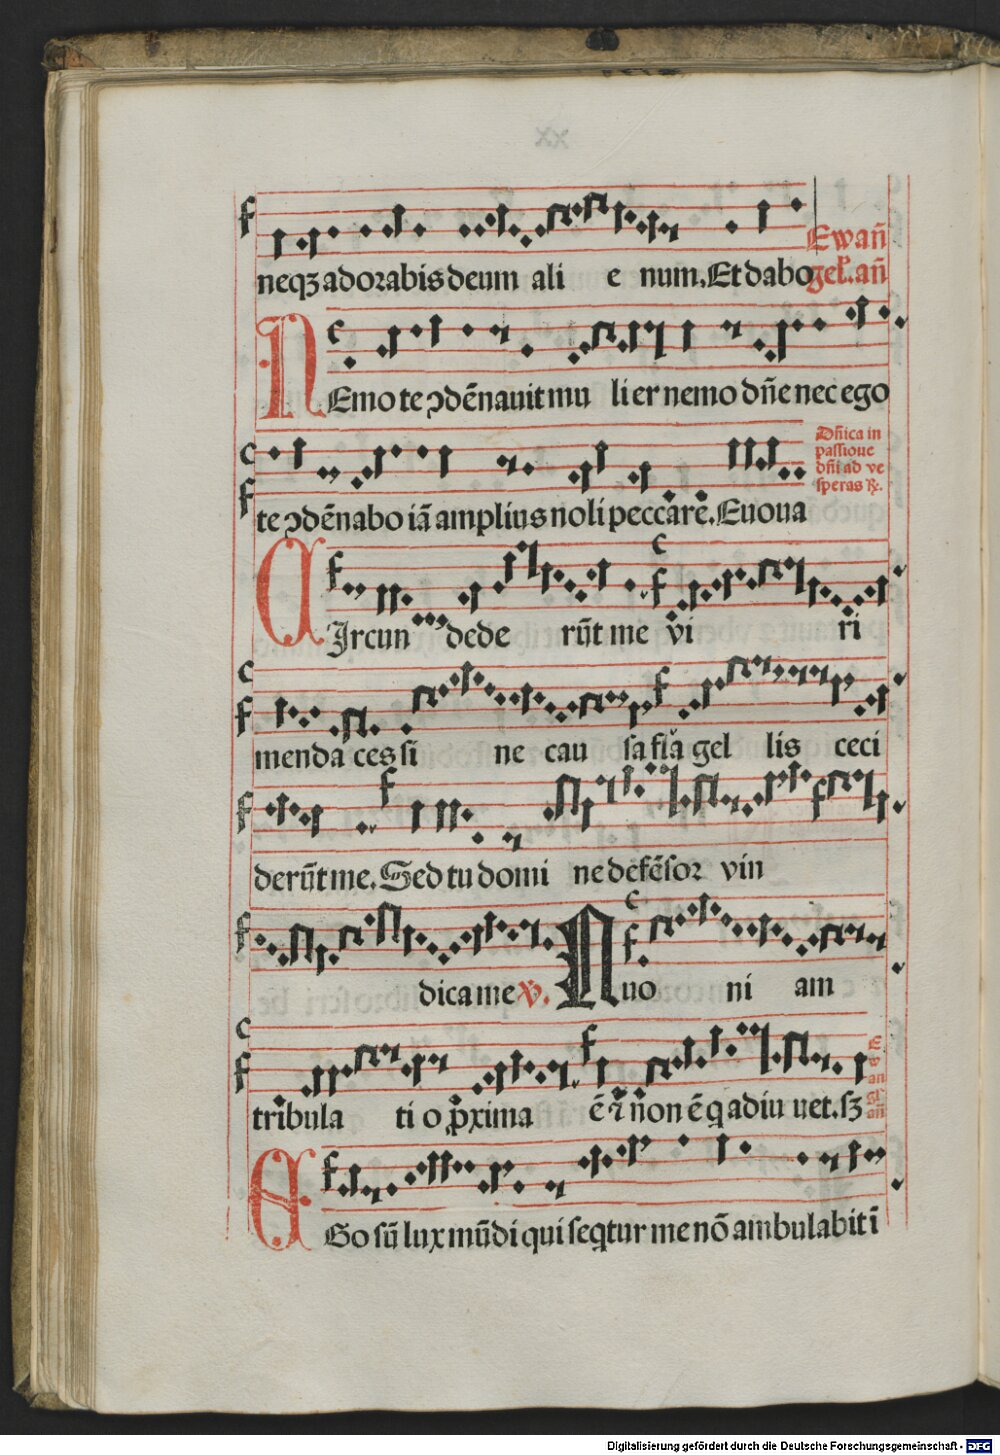 neqꝫ adorabis deum ali e num. Et dabo
Ewañ
gel̃. añ
NEmo te ↄdēnauit mu li er nemo dn̄e nec ego
te ↄdēnabo iā amplius noli peccare. Euoua
Dn̄ica in
passioue
dn̄i ad ve
speras ℞.
CIrcun dede rūt me vi ri
menda ces si ne cau sa fla gel lis ceci
derūt me. Sed tu domi ne defēsor vin
dica me ℣. Quo ni am
tribula ti o ꝓxima ē ⁊ non ē q adiu uet. sꝫ
Ewangl̃. añ
EGo sū lux mūdi qui seqtur me nō ambulabit ī
Digitalisierung gefördert durch die Deutsche Forschungsgemeinschaft - DFG